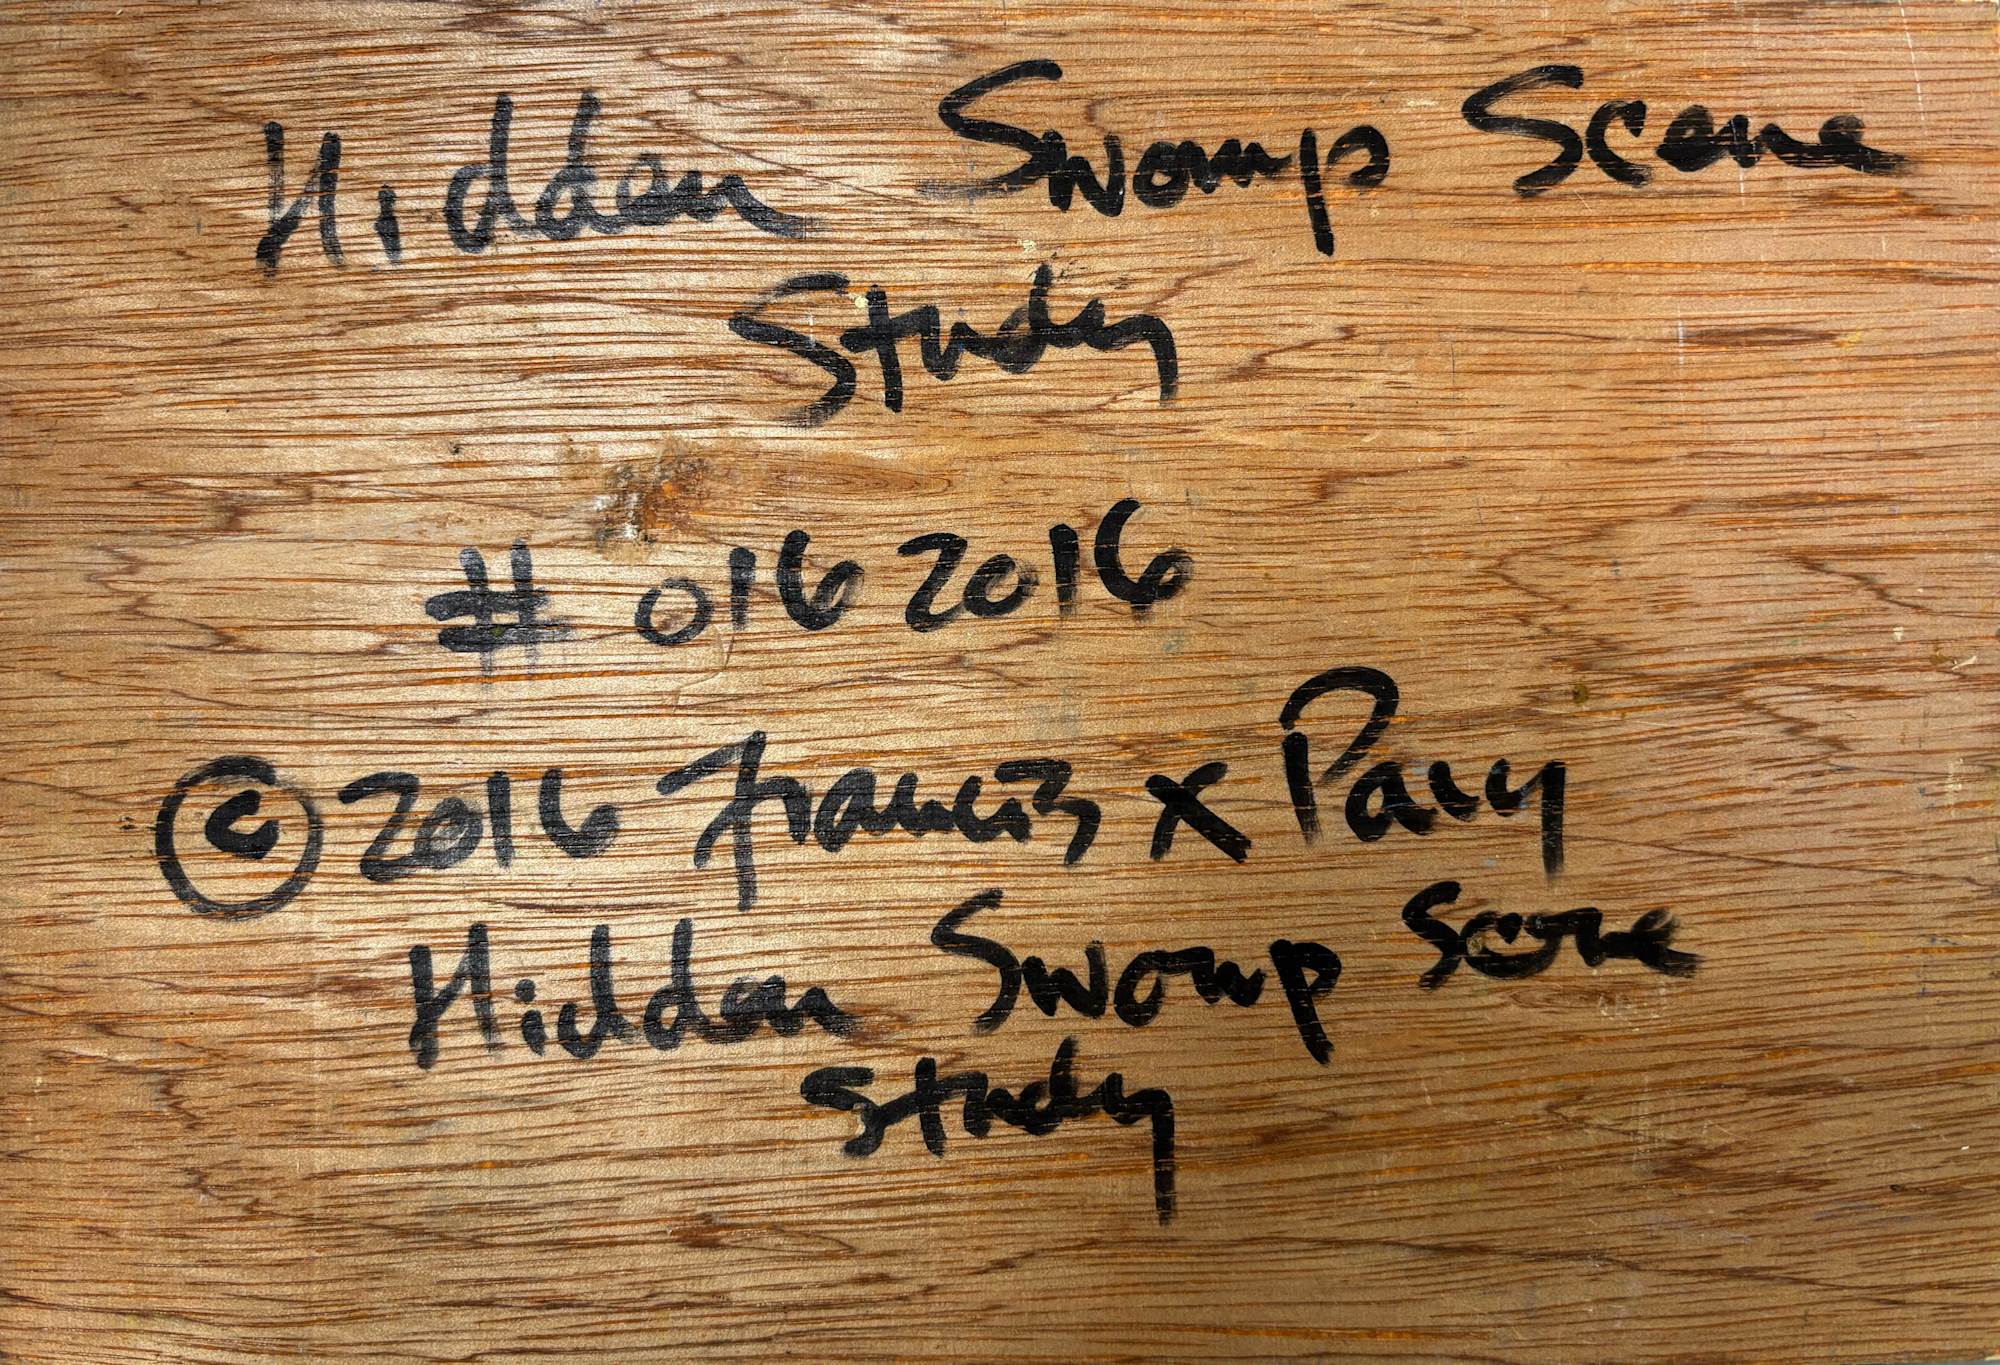 Hidden Swamp Scene
Study
# 016 2016
© 2016 Francis X Pavy
Hidden Swamp Scene
Study